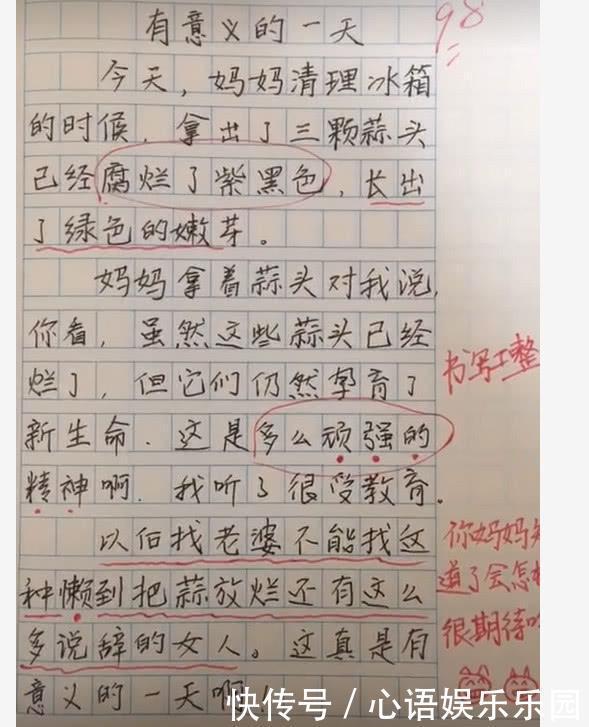 有意义的一天
98
今天，妈妈清理冰箱
的时候，拿出了三颗蒜头
已经腐烂了紫黑色，长出
了绿色的嫩芽。
妈妈拿着蒜头对我说，
你看，虽然这些蒜头已经
烂了，但它们仍然孕育了
新生命．这是多么顽强的
精神啊．我听了很受教育。
以后找老婆不能找这
种懒到把蒜放烂还有这么
多说辞的女人。这真是有
意义的一天啊
书写工整
你妈妈知
道了会怎
很期待
快传号 / 心语娱乐乐园